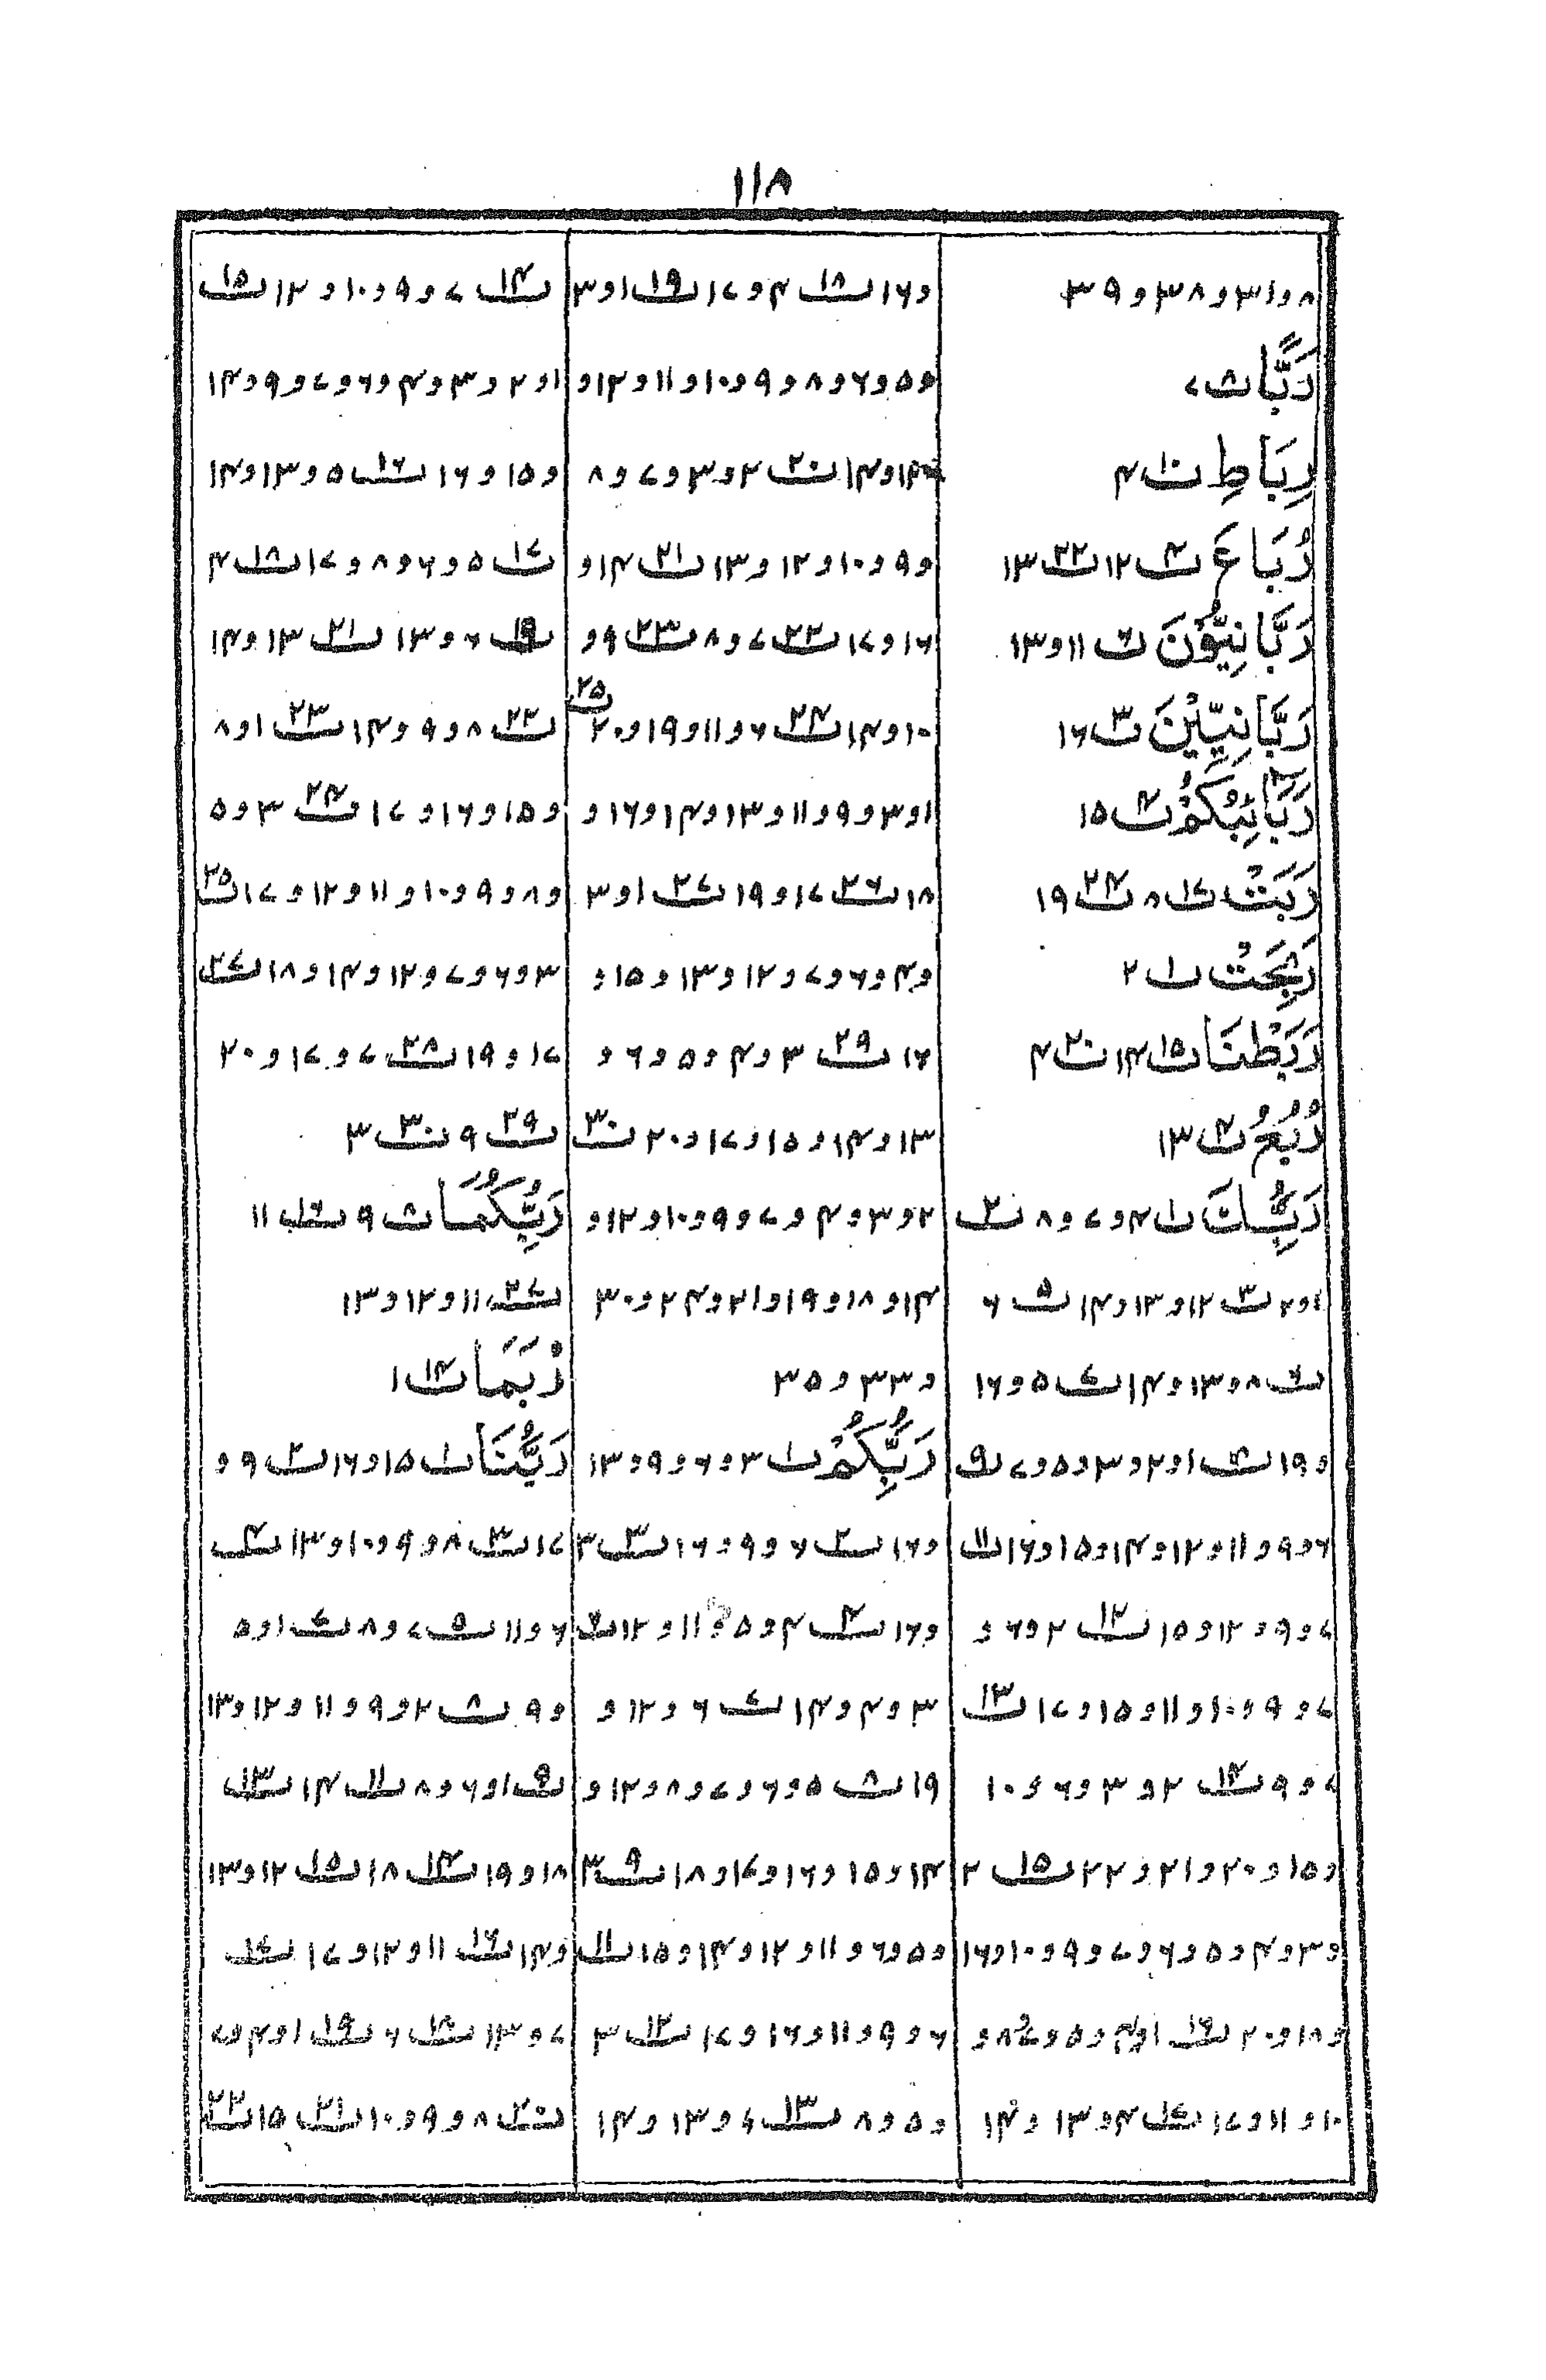 ۱۱۸
۸ و۳۱ و۳۸ و۳۹
رَبًّا پ۸ ۷
رِبَاطِ پ۱۰ ۴
رُبَاعَ پ۴ ۱۲ پ۲۲ ۱۳
رَبَّانِيُّوْنَ پ۶ ۱۱ و۱۳
رَبَّانِيِّيْنَ پ۳ ۱۶
رَبَائِبُكُمْ پ۴ ۱۵
رَبَتْ پ۱۷ ۸ پ۲۴ ۱۹
رَبِحَتْ پ۱ ۲
رَبَطْنَا پ۱۵ ۱۴ پ۲۰ ۴
رُبُعُ پ۴ ۱۳
رَبُّكَ پ۱ ۴ و۷ و۸ پ۲
۱ و۲ پ۳ ۱۲ و۱۳ و۱۴ پ۵ ۶
پ۶ ۸ و۱۳ و۱۴ پ۷ ۵ و۱۶
و۱۹ پ۸ ۱ و۲ و۳ و۵ و۷ پ۹
۶ و۹ و۱۱ و۱۲ و۱۴ و۱۵ و۱۶ پ۱۱
۷ و۹ و۱۲ و۱۵ پ۱۲ ۲ و۶ و
۷ و۹ و۱۰ و۱۱ و۱۵ و۱۷ پ۱۳
۷ و۹ پ۱۴ ۲ و۳ و۶ و۱۰
و۱۵ و۲۰ و۲۱ و۲۲ پ۱۵ ۲
و۳ و۴ و۵ و۶ و۷ و۹ و۱۰ و۱۶
و۱۸ و۲۰ پ۱۶ ۱ و۴ و۵ و۷ و۸ و
۱۰ و۱۱ و۱۷ پ۱۷ ۴ و۱۳ و۱۴
و۱۶ پ۱۸ ۴ و۱۷ پ۱۹ ۱ و۳
و۵ و۶ و۸ و۹ و۱۰ و۱۱ و۱۲ و
۱۴ و۱۴ پ۲۰ ۲ و۳ و۷ و۸
و۹ و۱۰ و۱۲ و۱۳ پ۲۱ ۱۴ و
۱۶ و۱۷ پ۲۲ ۷ و۸ پ۲۳ ۹ و
۱۰ و۱۴ پ۲۴ ۶ و۱۱ و۱۹ و۲۰ پ۲۵
۱ و۳ و۹ و۱۱ و۱۳ و۱۴ و۱۶ و
۱۸ پ۲۶ ۱۷ و۱۹ پ۲۷ ۱ و۳
و۴ و۶ و۷ و۱۲ و۱۳ و۱۵ و
۱۶ پ۲۹ ۳ و۴ و۵ و۶ و
۱۳ و۱۴ و۱۵ و۱۷ و۲۰ پ۳۰
۲ و۳ و۴ و۷ و۹ و۱۰ و۱۲ و
۱۴ و۱۸ و۱۹ و۲۱ و۲۴ و۳۰
و۳۳ و۳۵
رَبُّكُمْ پ۱ ۳ و۶ و۹ و۱۳
و۱۶ پ۲ ۶ و۹ و۱۶ پ۳ ۳
و۱۶ پ۴ ۴ و۵ و۱۱ و۱۲ پ۶
۳ و۴ و۱۴ پ۷ ۶ و۱۲ و
۱۹ پ۸ ۵ و۶ و۷ و۸ و۱۲ و
۱۴ و۱۵ و۱۶ و۱۷ و۱۸ پ۹ ۳
و۵ و۶ و۱۱ و۱۲ و۱۴ و۱۵ پ۱۱
۶ و۹ و۱۱ و۱۶ و۱۷ پ۱۲ ۳
و۵ و۸ پ۱۳ ۶ و۱۳ و۱۴
پ۱۴ ۷ و۹ و۱۰ و۱۲ پ۱۵
۱ و۲ و۳ و۴ و۶ و۷ و۹ و۱۴
و۱۵ و۱۶ پ۱۶ ۵ و۱۳ و۱۴
پ۱۷ ۵ و۶ و۸ و۱۷ پ۱۸ ۴
پ۱۹ ۶ و۱۳ پ۲۱ ۱۳ و۱۴
پ۲۲ ۸ و۹ و۱۴ پ۲۳ ۱ و۸
و۱۵ و۱۶ و۱۷ پ۲۴ ۳ و۵
و۸ و۹ و۱۰ و۱۱ و۱۲ و۱۷ پ۲۵
۳ و۶ و۷ و۱۲ و۱۴ و۱۸ پ۲۷
۱۷ و۱۹ پ۲۸ ۷ و۱۷ و۲۰
پ۲۹ ۹ پ۳۰ ۳
رَبُّكُمَا پ۸ ۹ پ۱۶ ۱۱
پ۲۷ ۱۱ و۱۲ و۱۳
رُبَمَا پ۱۴ ۱
رَبُّنَا پ۱ ۱۵ و۱۶ پ۲ ۹ و
۱۷ پ۳ ۸ و۹ و۱۰ و۱۳ پ۴
۶ و۱۱ پ۵ ۷ و۸ پ۷ ۱ و۵
و۹ پ۸ ۲ و۹ و۱۱ و۱۲ و۱۳
پ۹ ۱ و۶ و۸ پ۱۱ ۱۴ پ۱۳
۱۸ و۱۹ پ۱۴ ۱۸ پ۱۵ ۱۲ و۱۳
و۱۴ پ۱۶ ۱۱ و۱۲ و۱۷ پ۱۷
۷ و۱۳ پ۱۸ ۶ پ۱۹ ۱ و۴ و۷
پ۲۰ ۸ و۹ و۱۰ پ۲۱ ۱۵ پ۲۲